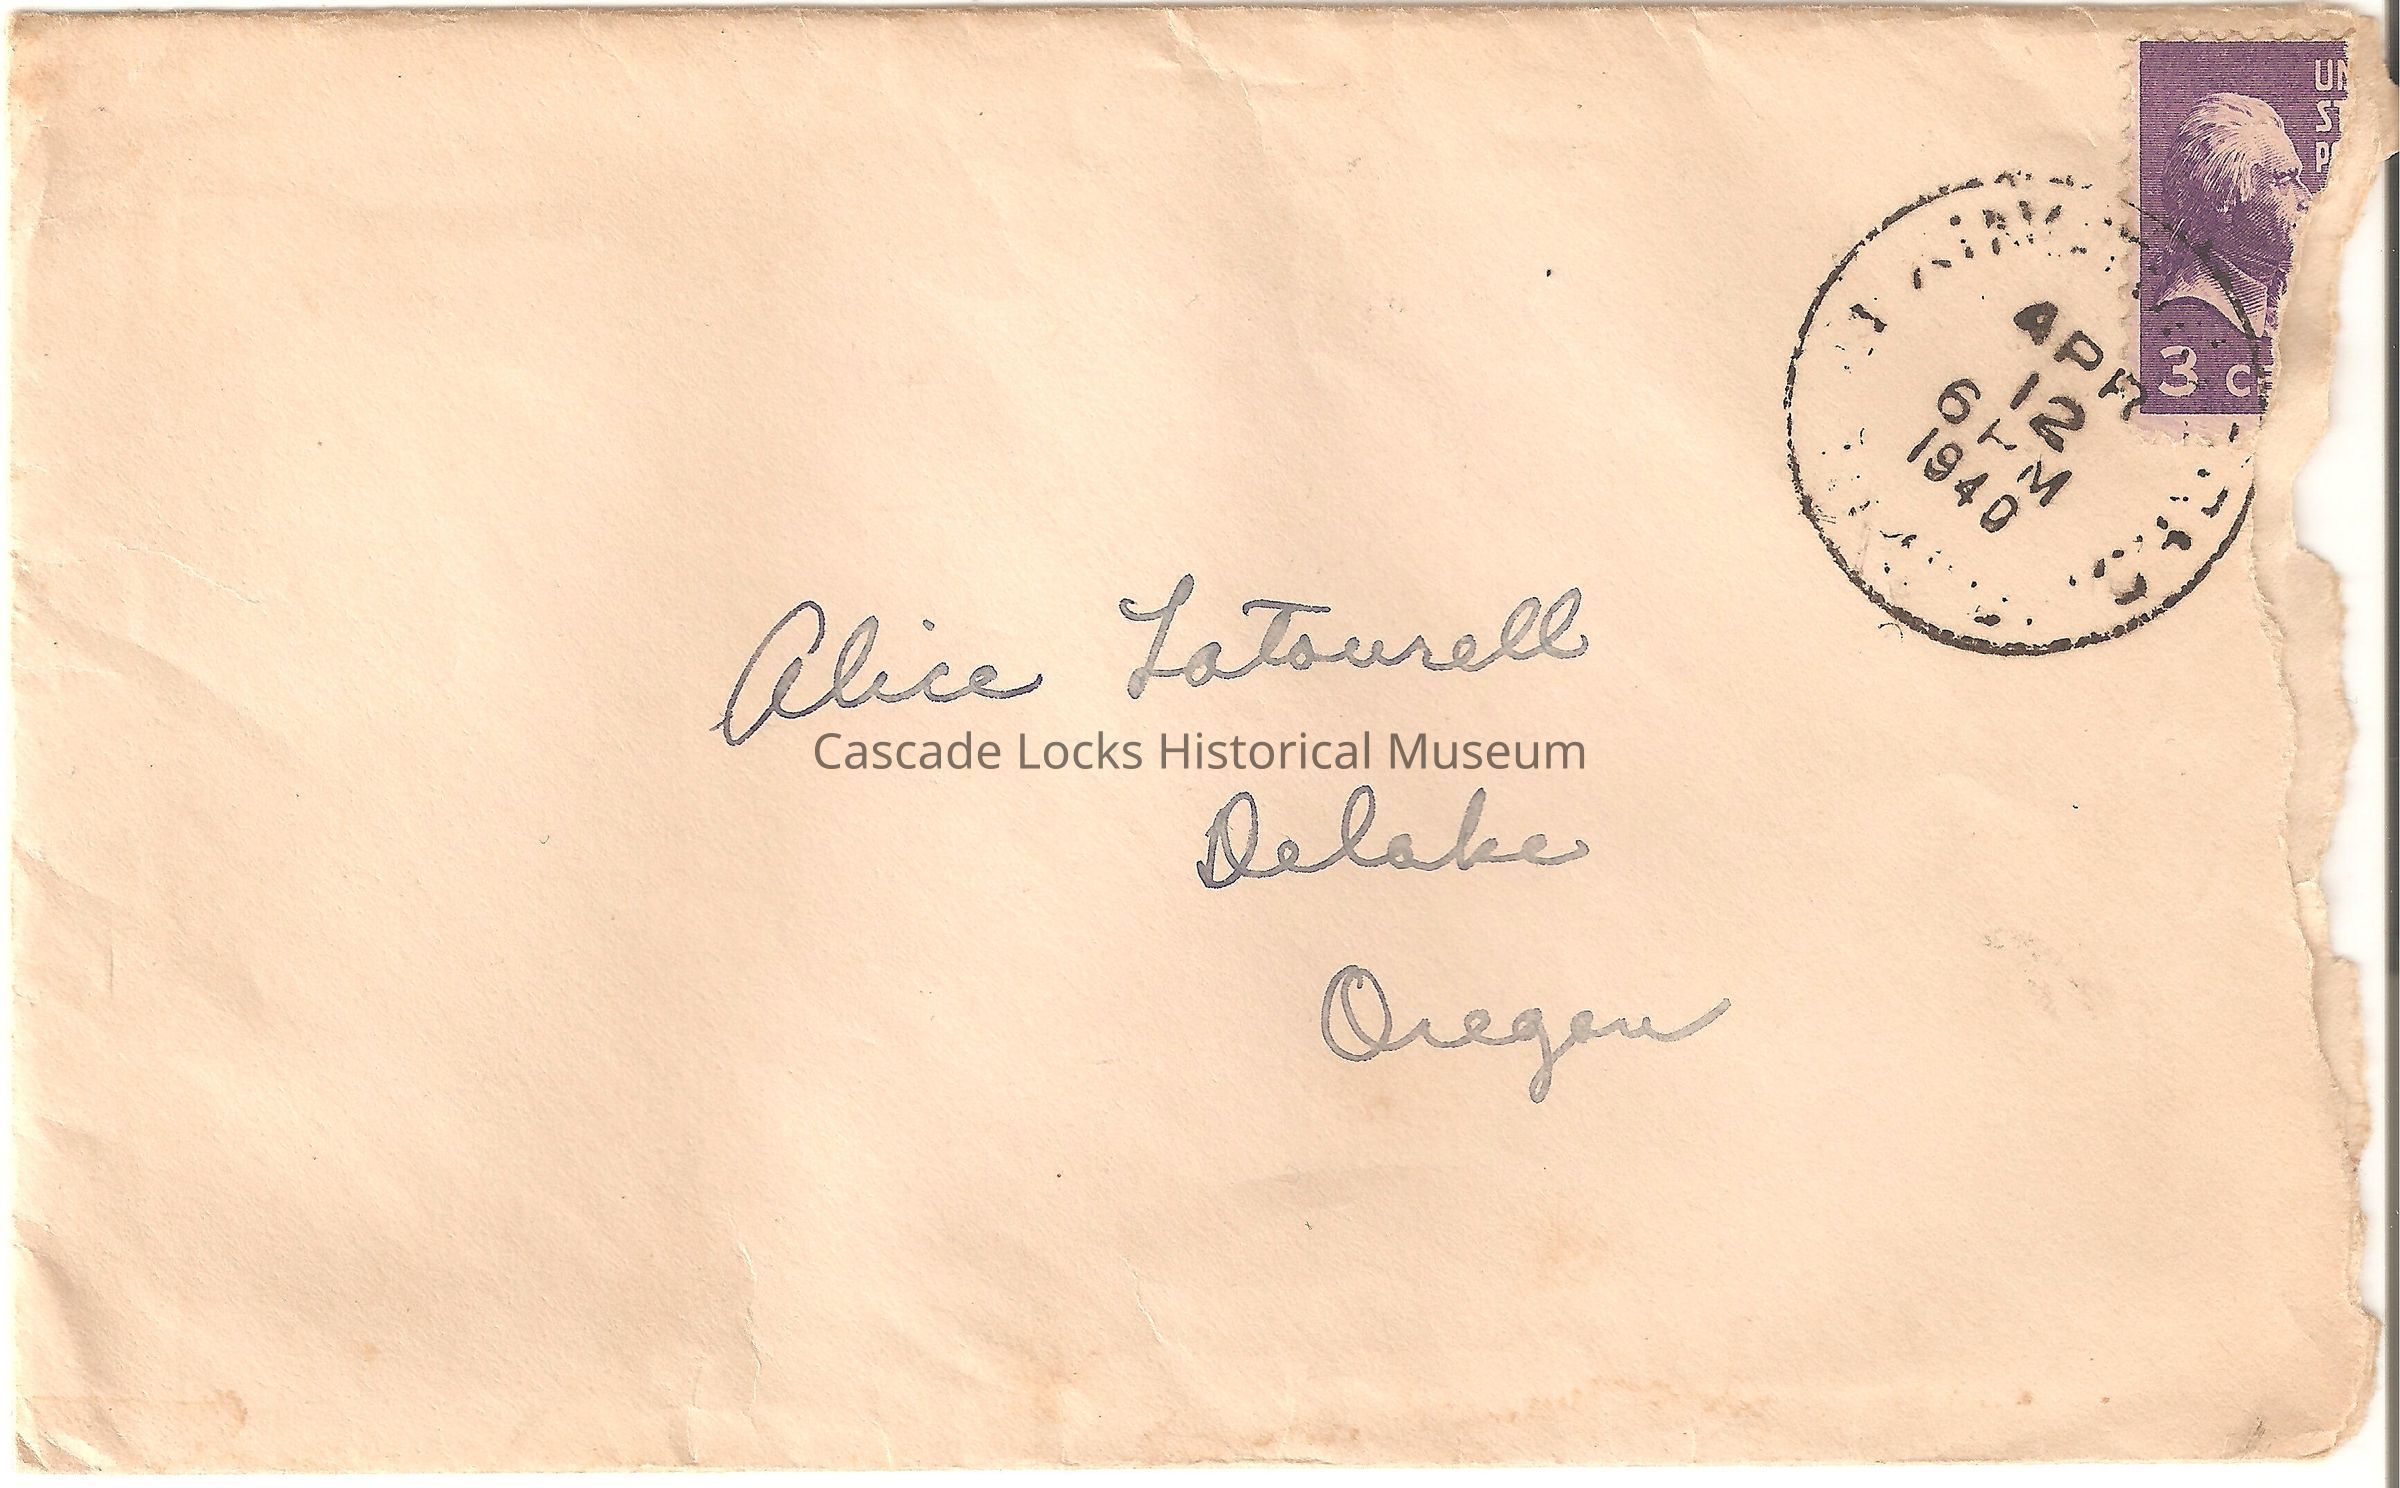 UN
ST
PO
3 C
APR
12
6 PM
1940
Alice Latourell
Cascade Locks Historical Museum
Delake
Oregon